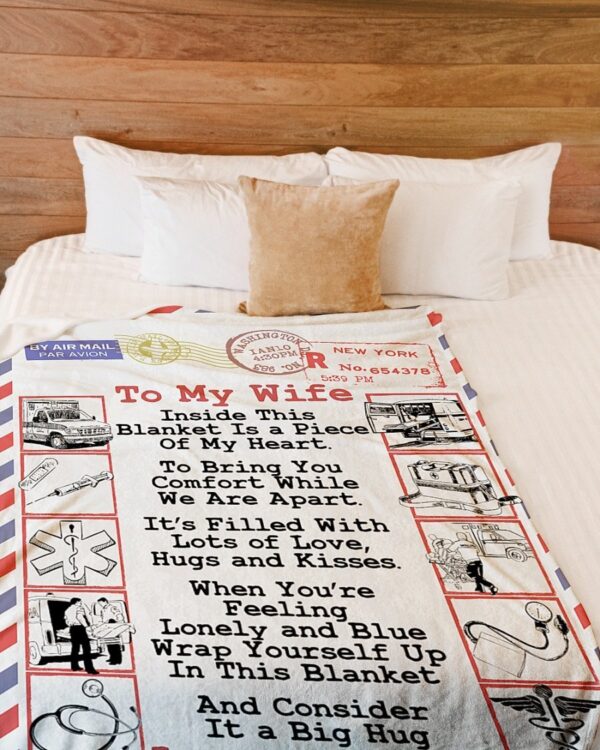 BY AIR MAIL
PAR AVION
WASHINGTON
JAN10
4:30PM
NEW YORK
R
No. 654378
5:39 PM
To My Wife
Inside This
Blanket Is a Piece
Of My Heart.
To Bring You
Comfort While
We Are Apart.
It's Filled With
Lots of Love,
Hugs and Kisses.
When You're
Feeling
Lonely and Blue
Wrap Yourself Up
In This Blanket
And Consider
It a Big Hug